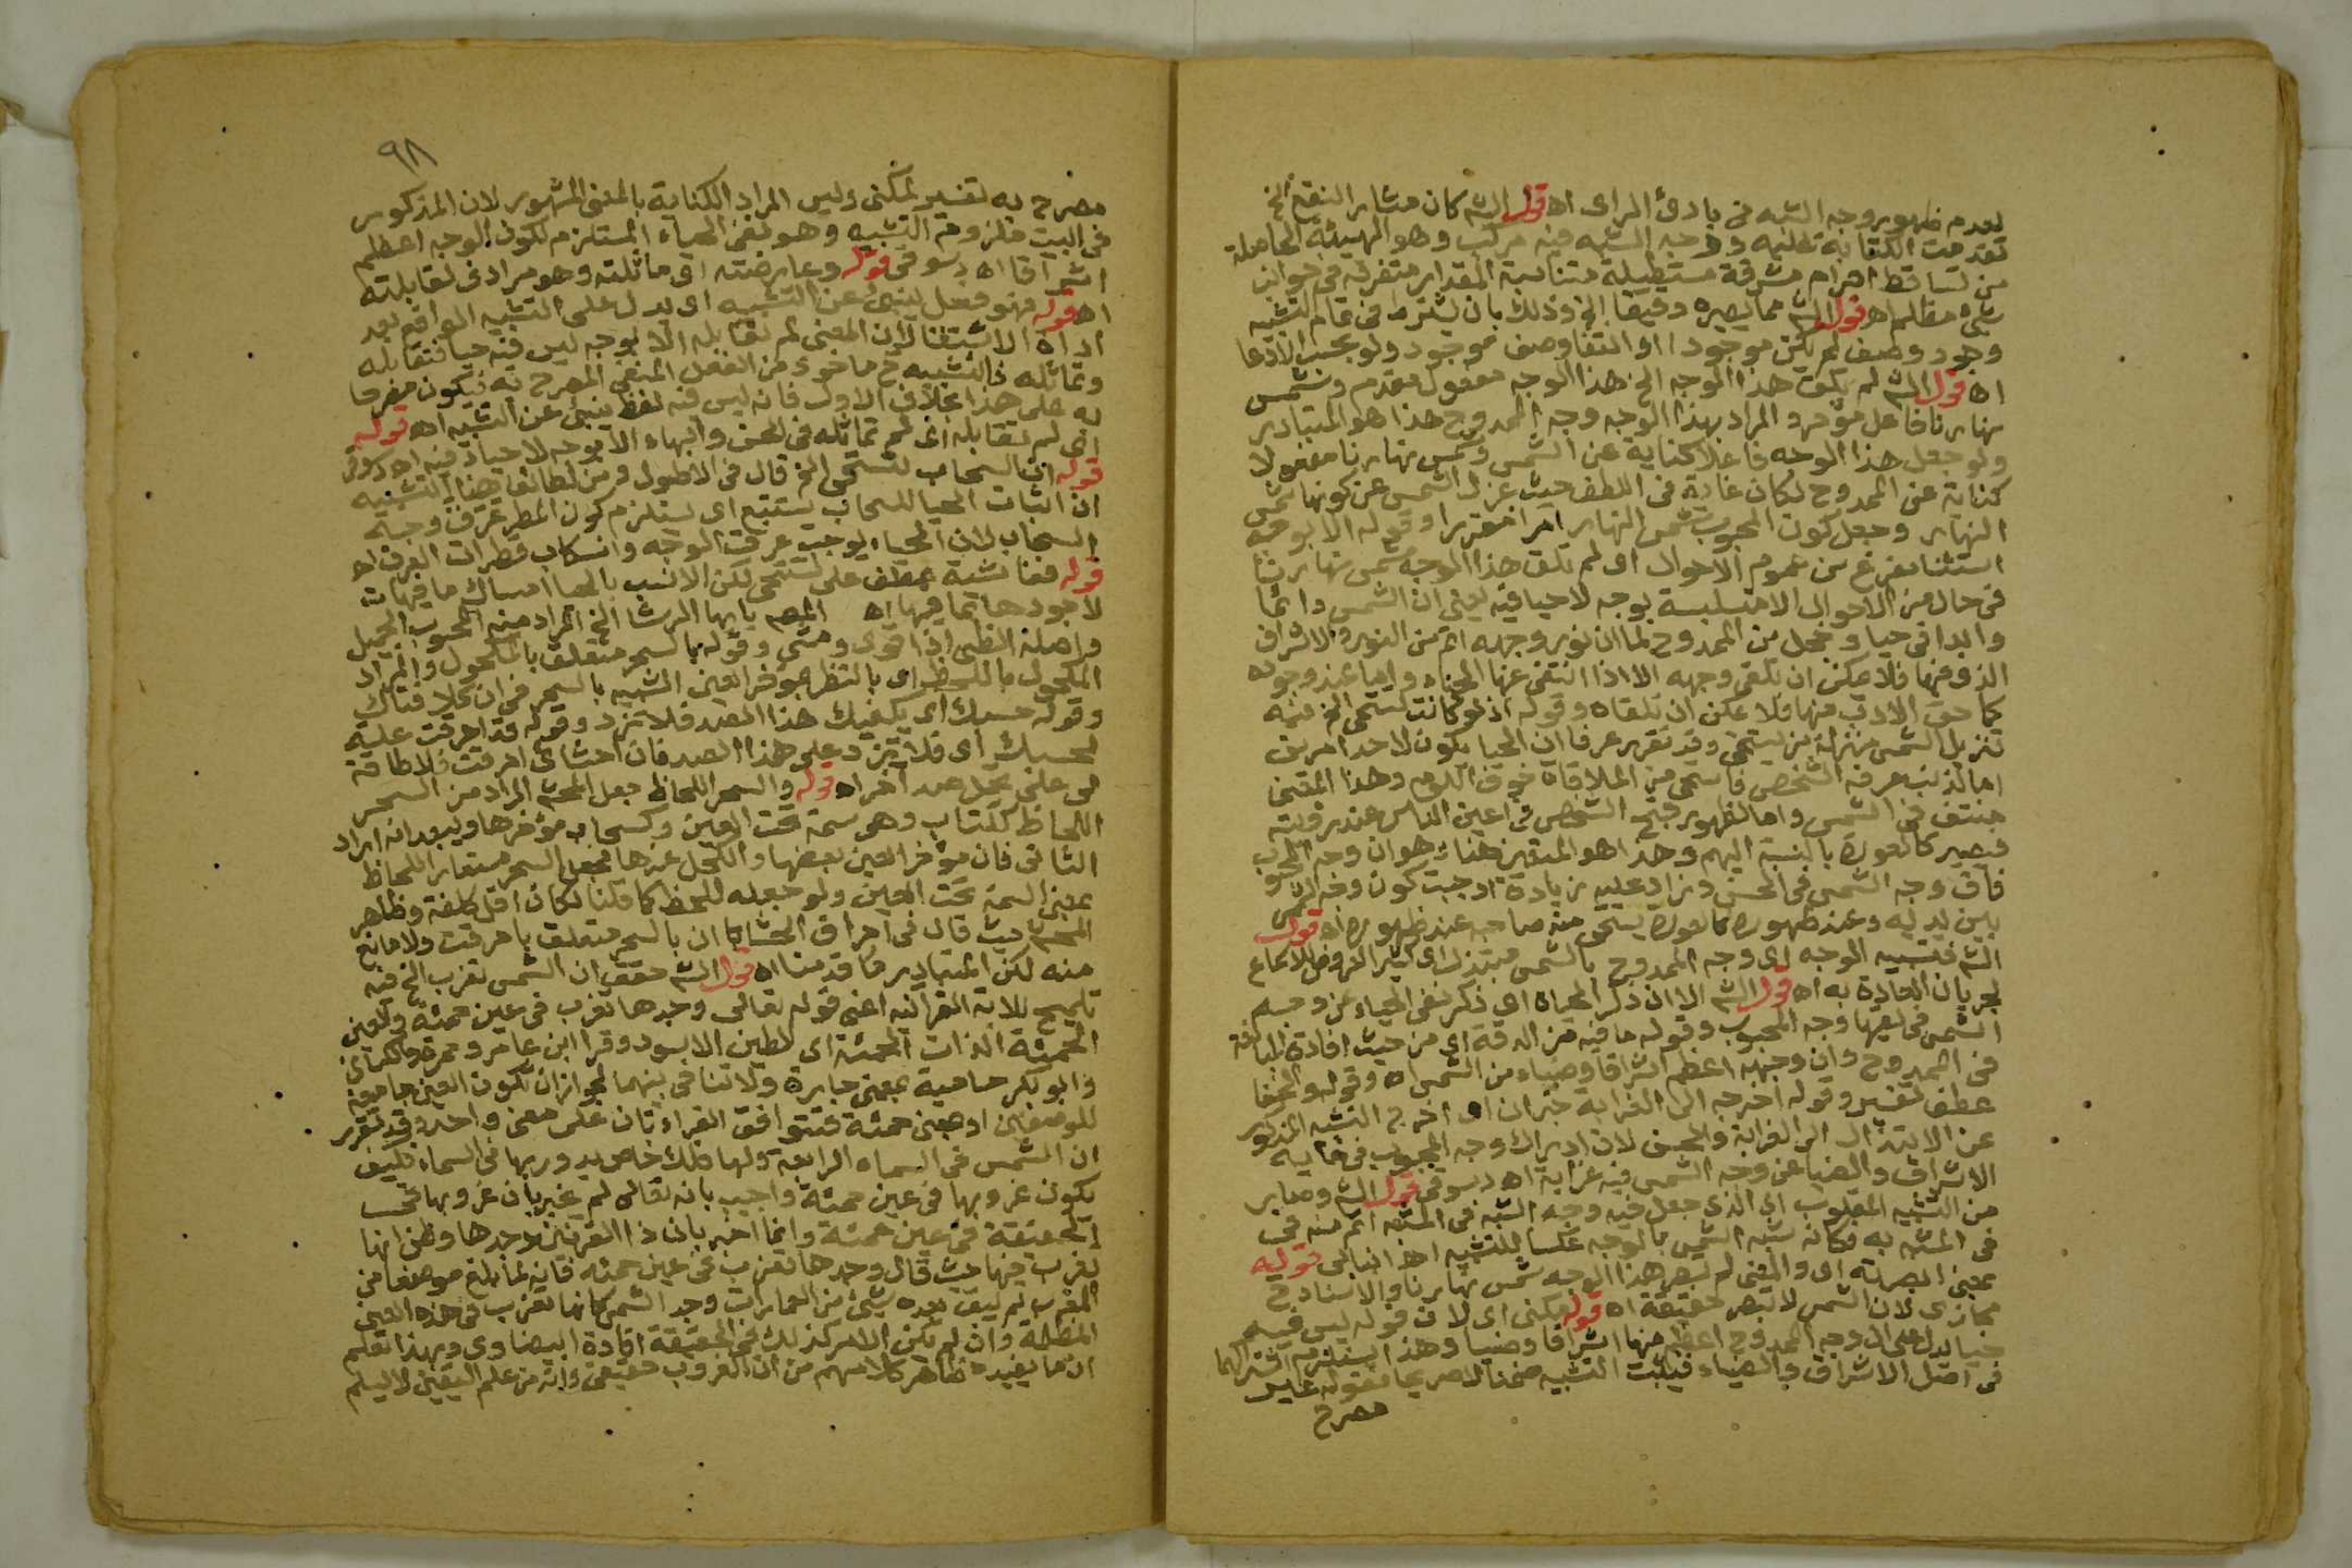 لعدم ظهور وجه الشبه في بادئ الراى اه قول الشم كان مشار النقع الخ
تقدمت الكتابة عليه ووجه الشبه فيه مركب وهو الهيئة الحاصلة
من تساقط اجرام مشرقة مستطيلة متناسبة المقدار متفرقة في جوانب
شئ مظلم اه قول الشم مما يصيره دقيقا الخ وذلك بان يشترط في تمام التشبيه
وجود وصف لم يكن موجودا او انتفا وصف موجود ولو بحسب الادعا
اه قول الشم لم يلق هذا الوجه الخ هذا الوجه مفعول مقدم وشمس
نهارنا فاعل مؤخر والمراد بهذا الوجه وجه الممدوح هذا هو المتبادر
ولو جعل هذا الوجه فاعلا كناية عن الشمس وشمس نهارنا مفعولا
كناية عن الممدوح لكان غاية في اللطف حيث عزل الشمس عن كونها شمس
النهار وجعل كون المحبوب شمس النهار امرا مقررا وقوله الا بوجه
استثنا مفرغ من عموم الاحوال اى لم تلق هذا الوجه شمس نهارنا
في حال من الاحوال الا متلبسة بوجه لا حيا فيه يعني ان الشمس دائما
وابدا في حيا وخجل من الممدوح لما ان نور وجهه اتم من النور والاشراق
الذى فيها فلا يمكن ان تلقى وجهه الا اذا انتفى عنها الحياء واما عند وجوده
كما هو الادب منها فلا يمكن ان تلقاه وقوله اذ لو كانت تستحى الخ فيه
تنزيل الشمس منزلة من يستحى وقد تقرر عرفا ان الحيا يكون لاحد امرين
اما لذنب عرفه الشخص فاستحى من الملاقاة خوف اللوم وهذا المعنى
منتف في الشمس واما لظهور قبح الشخص في اعين الناس عند رؤيته
فيصير كالعورة بالنسبة اليهم وهذا هو المتعين هنا وهو ان وجه المحبوب
فاق وجه الشمس في الحسن وزاد عليه زيادة اوجبت كون وجه الشمس
بين يديه وعند ظهوره كالعورة يستحى منه صاحبه عند ظهوره اه قول
الشم فتشبيه الوجه اى وجه الممدوح بالشمس مبتذل اى كثير العروض للاسماع
لجريان العادة به اه قول الشم الا ان ذكر الحياء اى ذكر نفي الحياء عن وجه
الشمس في لقيها وجه المحبوب وقوله ما فيه من الدقة اى من حيث افادة المبالغة
في الممدوح وان وجهه اعظم اشراقا وضياء من الشمس اه وقوله والخفا
عطف تفسير وقوله اخرجه الى الغرابة خبر ان اى اخرج التشبيه المذكور
عن الابتذال الى الغرابة والحسن لان ادراك وجه المحبوب في غاية
الاشراق والضيا عن وجه الشمس فيه غرابة اه دسوقى قول الشم وصابر
من التشبيه المقلوب اى الذى جعل فيه وجه الشبه في المشبه اتم منه في
في المشبه به فكانه شبه الشمس بالوجه عكسا للتشبيه اه انبابى قوله
بمعنى ابصرته اى والمعنى لم تبصر هذا الوجه شمس نهارنا والاسناد ح
مجازى لان الشمس لا تبصر حقيقة اه قوله مكنى اى لان قوله ليس فيه
حيا يدل على ان وجه الممدوح اعظم منها اشراقا وضيا وهذا يستلزم اشتراكهما
في اصل الاشراق والضياء فيثبت التشبيه ضمنا لا صريحا فقوله غير
مصرح
٩٨
مصرح به تفسير لمكنى وليس المراد الكناية بالمعنى المشهور لان المذكور
في البيت ملزوم التشبيه وهو نفي الحياء المستلزم لكون الوجه اعظم
اشراقا اه دسوقى قوله وعارضته اى ماثلته وهو مرادى لقابلته
اه قوله فهو فعل ينبئ عن التشبيه اى يدل على التشبيه الواقع بعد
اداة الاستثنا لان المعنى لم تقابله الا بوجه ليس فيه حيا فتقابله
وتماثله فالتشبيه ح ماخوذ من الفعل المنفي المصرح به فيكون مصرحا
به على هذا بخلاف الاول فانه ليس فيه لفظ ينبئ عن التشبيه اه قوله
اى لم تقابله اى لم تماثله في الحسن والبهاء الا بوجه لا حياء فيه اه دسوقى
قوله ان السحاب لتستحى الخ قال في الاطول ومن لطائف هذا التشبيه
ان اثبات الحيا للسحاب يستتبع اى يستلزم كون المطر عرق وجه
السحاب لان الحياء يوجب عرقت الوجه وانسكاب قطرات العرق اه
قوله فقاسته عطف على لتستحى لكن الانسب بالحيا امساك ما فيها
لا جودها بما فيها اه المصم يا ايها الرشا الخ المراد منه المحبوب الجميل
واصله الظبى اذا قوى ومشى وقوله بالسحر متعلق بالمكحول والمراد
المكحول باللحظ اى بالنظر بمؤخر العين الشبيه بالسحر في ان كلا فتاك
وقوله حسبك اى يكفيك هذا الصد فلا تزد وقوله قد احرقت علة
لحسبك اى فلا تزد على هذا الصد فان احشاى احرقت فلا طاقة
لى على تحمل صد آخر اه قوله والسحر اللحاظ جعل المحشى المراد من السحر
اللحاظ ككتاب وهو سمة تحت العين وكسحاب مؤخرها ويبعد انه اراد
الثانى فان مؤخر العين بعضها والكحل عندها فجعل السحر مستعار اللحاظ
بمعنى السمة تحت العين ولو جعله للحظ كما قلنا لكان اقل كلفة وظاهر
المحشى حيث قال في احراق الحشا ان بالسحر متعلق باحرقت ولا مانع
منه لكن المتبادر ما قدمنا اه قول الشم حققت ان الشمس تغرب الخ فيه
تلميح للاية القرانيه اعنى قوله تعالى وجدها تغرب في عين حمئة والعين
الحمئة الذات الحمئة اى الطين الاسود وقرا ابن عامر وحمزة والكساى
وابو بكر حامية بمعنى حارة ولا تنافي بينهما لجواز ان تكون العين جامعة
للوصفين او بمعنى حمئة فتتوافق القراءتان على معنى واحد وقد تقرر
ان الشمس في السماء الرابعة ولها فلك خاص يدور بها في السماء فكيف
يكون غروبها في عين حمئة واجيب بانه تعالى لم يخبر بان غروبها بحسب
الحقيقة في عين حمئة وانما اخبر بان ذا القرنين وجدها وظن انها
تغرب فيها حيث قال وجدها تغرب في عين حمئه فانه لما بلغ موضعا من
المغرب لم يبق بعده شئ من العمارات وجد الشمس كانها تغرب في هذه العين
المظلمة وان لم تكن الامر كذلك في الحقيقة افادة البيضاوى وبهذا تعلم
ان ما يفيده ظاهر كلامهم من ان الغروب حقيقى وانه من علم اليقين لا يسلم